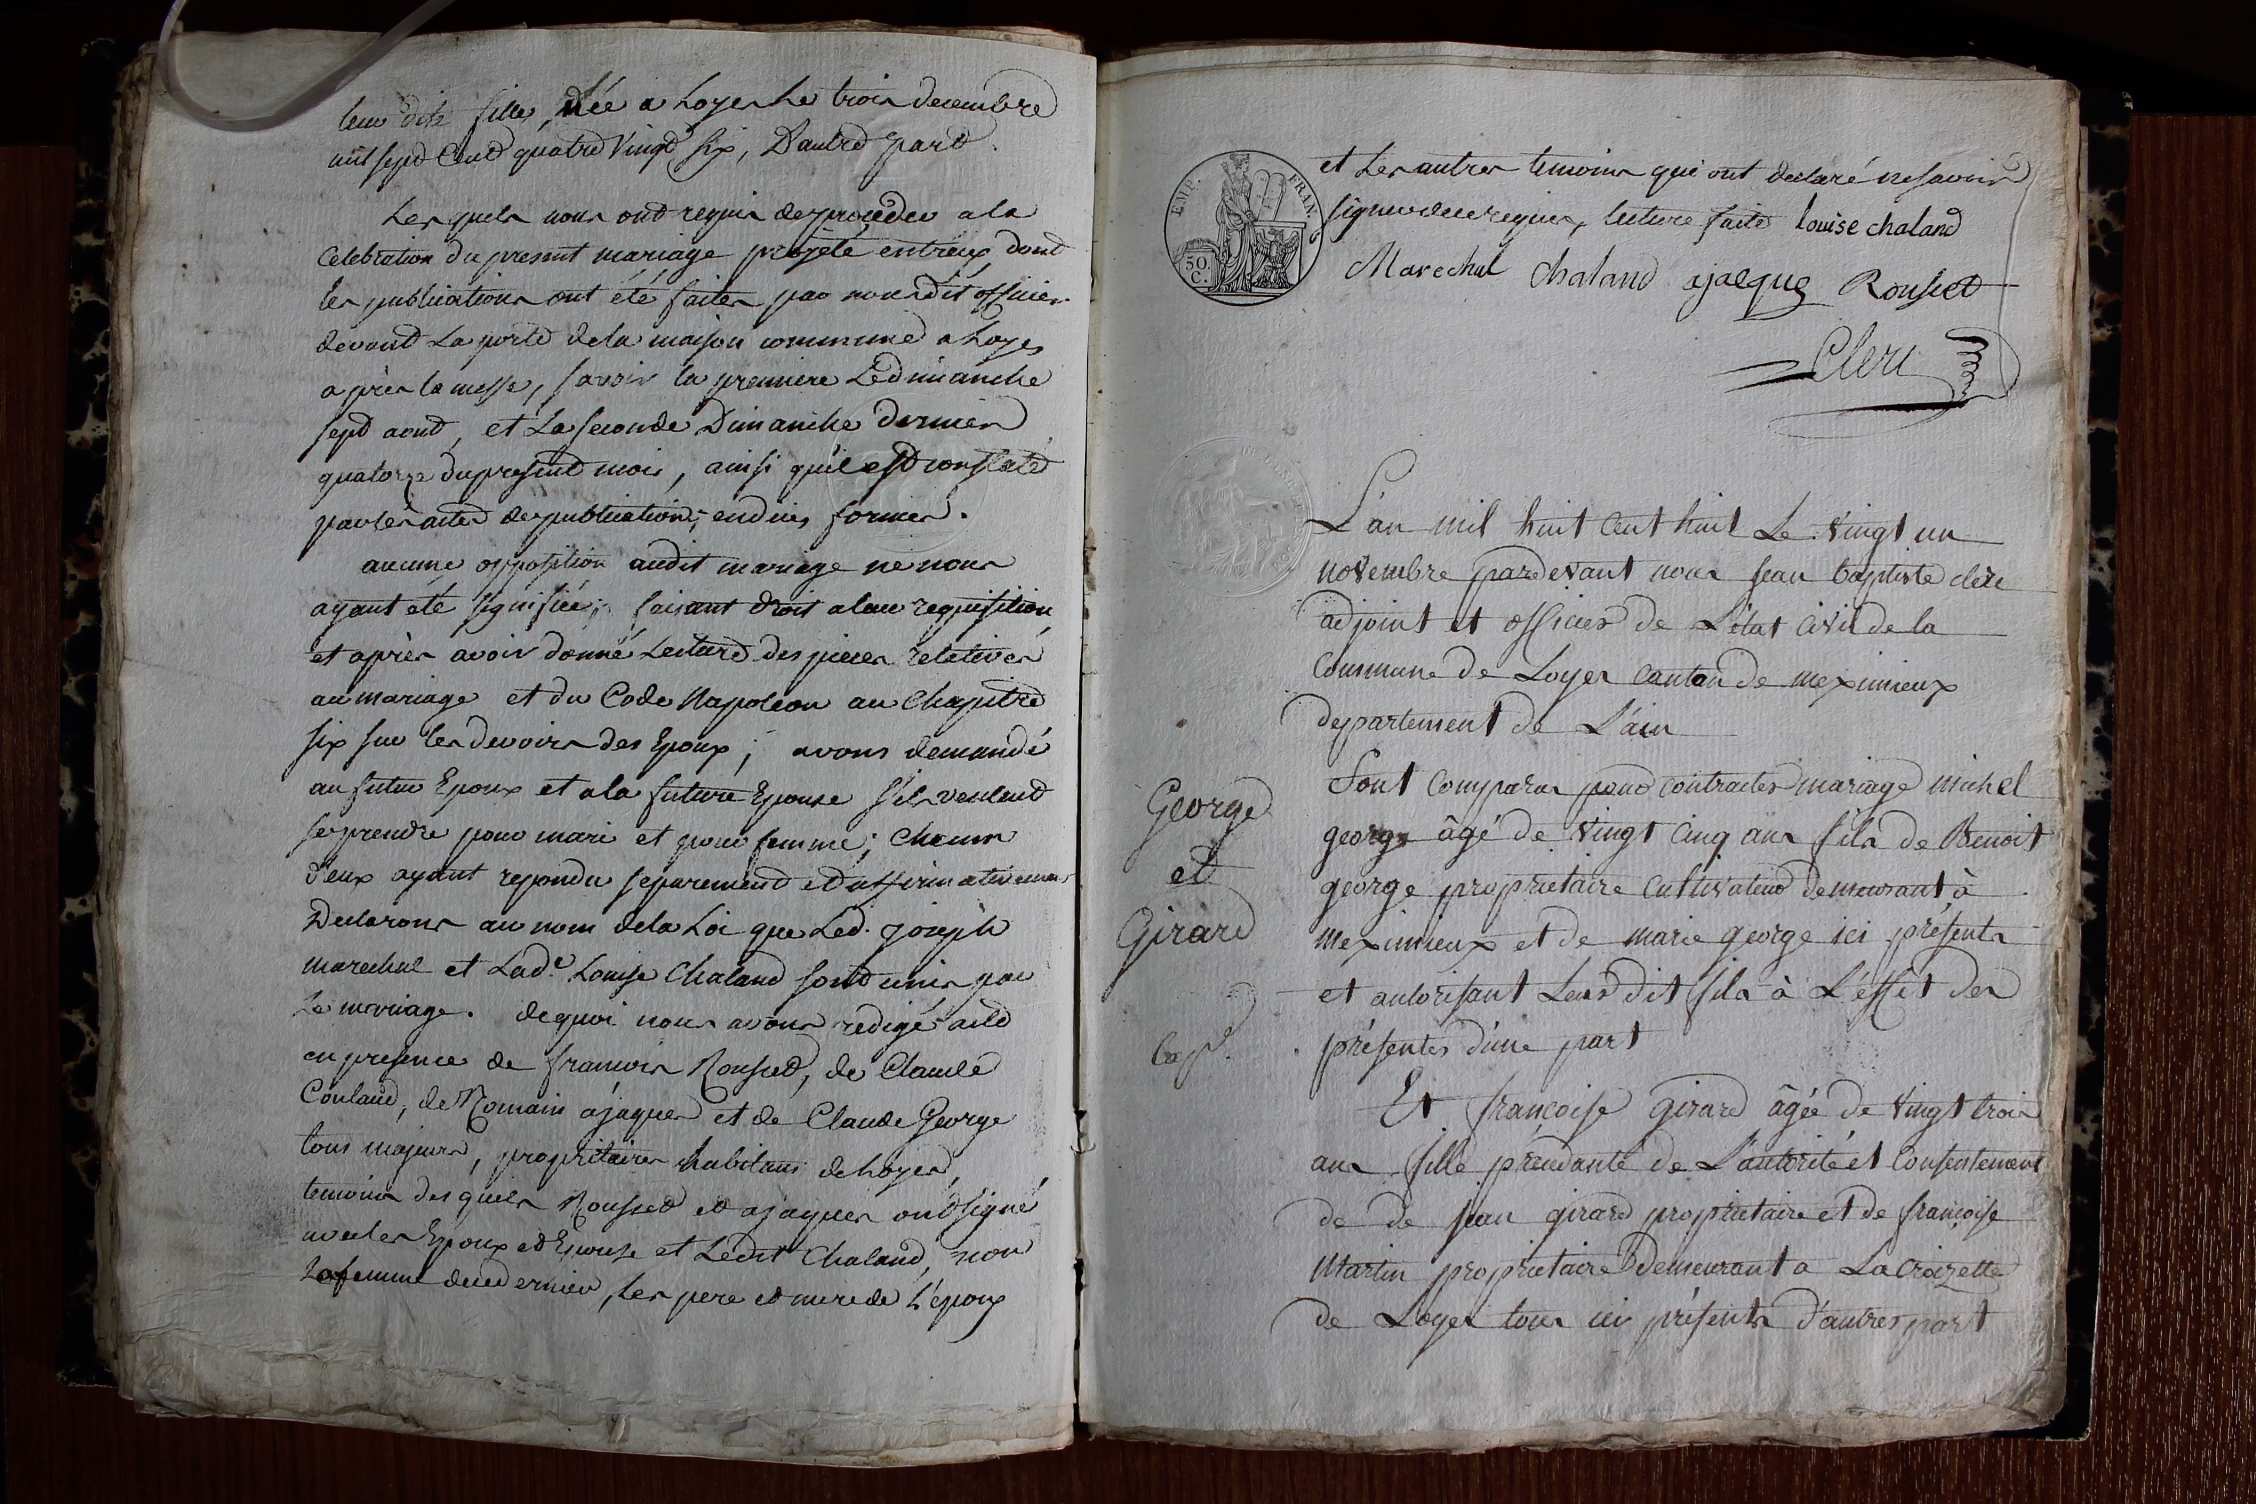 leur dite fille, née a Loyes Le trois decembre
mil sept Cent quatre Vingt Six, D'autre part.
Lesquels nous ont requis de proceder a la
Celebration du present mariage projété entreux dont
les publications ont été faites par nous dit officier
devant La porte de la maison commune a Loyes
après la messe, savoir la premiere Le dimanche
sept aout, et La seconde Dimanche dernier
quatorze du present mois, ainsi qu'il est constaté
par les actes de publications, en dues formes.
aucune opposition audit mariage ne nous
ayant été signifiée; faisant droit a leur requisition
et après avoir donné Lecture des pieces relatives
au mariage et du Code Napoleon au Chapitre
six sur les devoirs des Epoux; avons demandé
au futur Epoux et a la future Epouse s'ils veulent
se prendre pour mari et pour femme; chacun
d'eux ayant repondu separement et affirmativement
Declarons au nom de la Loi que Led. joseph
marechal et Lad.e Louise Chaland sont unis par
Le mariage. de quoi nous avons redigé acte
en presence de francois Rousset, de Claude
Coulaud, de Romain ajaques et de Claude George
tous majeurs, propriétaires habitans de Loyes,
temoins desquels Rousset et ajaques ont signé
avec les Epoux et Epouse et Ledit Chaland, non
La femme de ce dernier, les pere et mere de L'époux
EMP. FRAN.
50. C.
et Les autres temoins qui ont declaré ne savoir
signer de ce requis, lecture faite Louise chaland
Marechal Chaland ajaque Rousset
Clerc
L'an mil huit Cent huit Le Vingt un
novembre pardevant nous jean baptiste clerc
adjoint et officier de L'état Civil de la
Commune de Loyes Canton de meximieux
departement de L'ain
George
et
Girard
Sont Comparus pour contracter mariage michel
george âgé de Vingt Cinq ans fils de Benoit
george proprietaire Cultivateur demeurant à
meximieux et de marie george ici présents
et autorisant Leur dit fils à L'effet des
présentes d'une part
Et françoise girard âgée de Vingt trois
ans fille procédante de L'autorité et Consentement
de de jean girard proprietaire et de françoise
Martin proprietaire Demeurant a La Croizette
de Loyes tous ici présents d'autres part